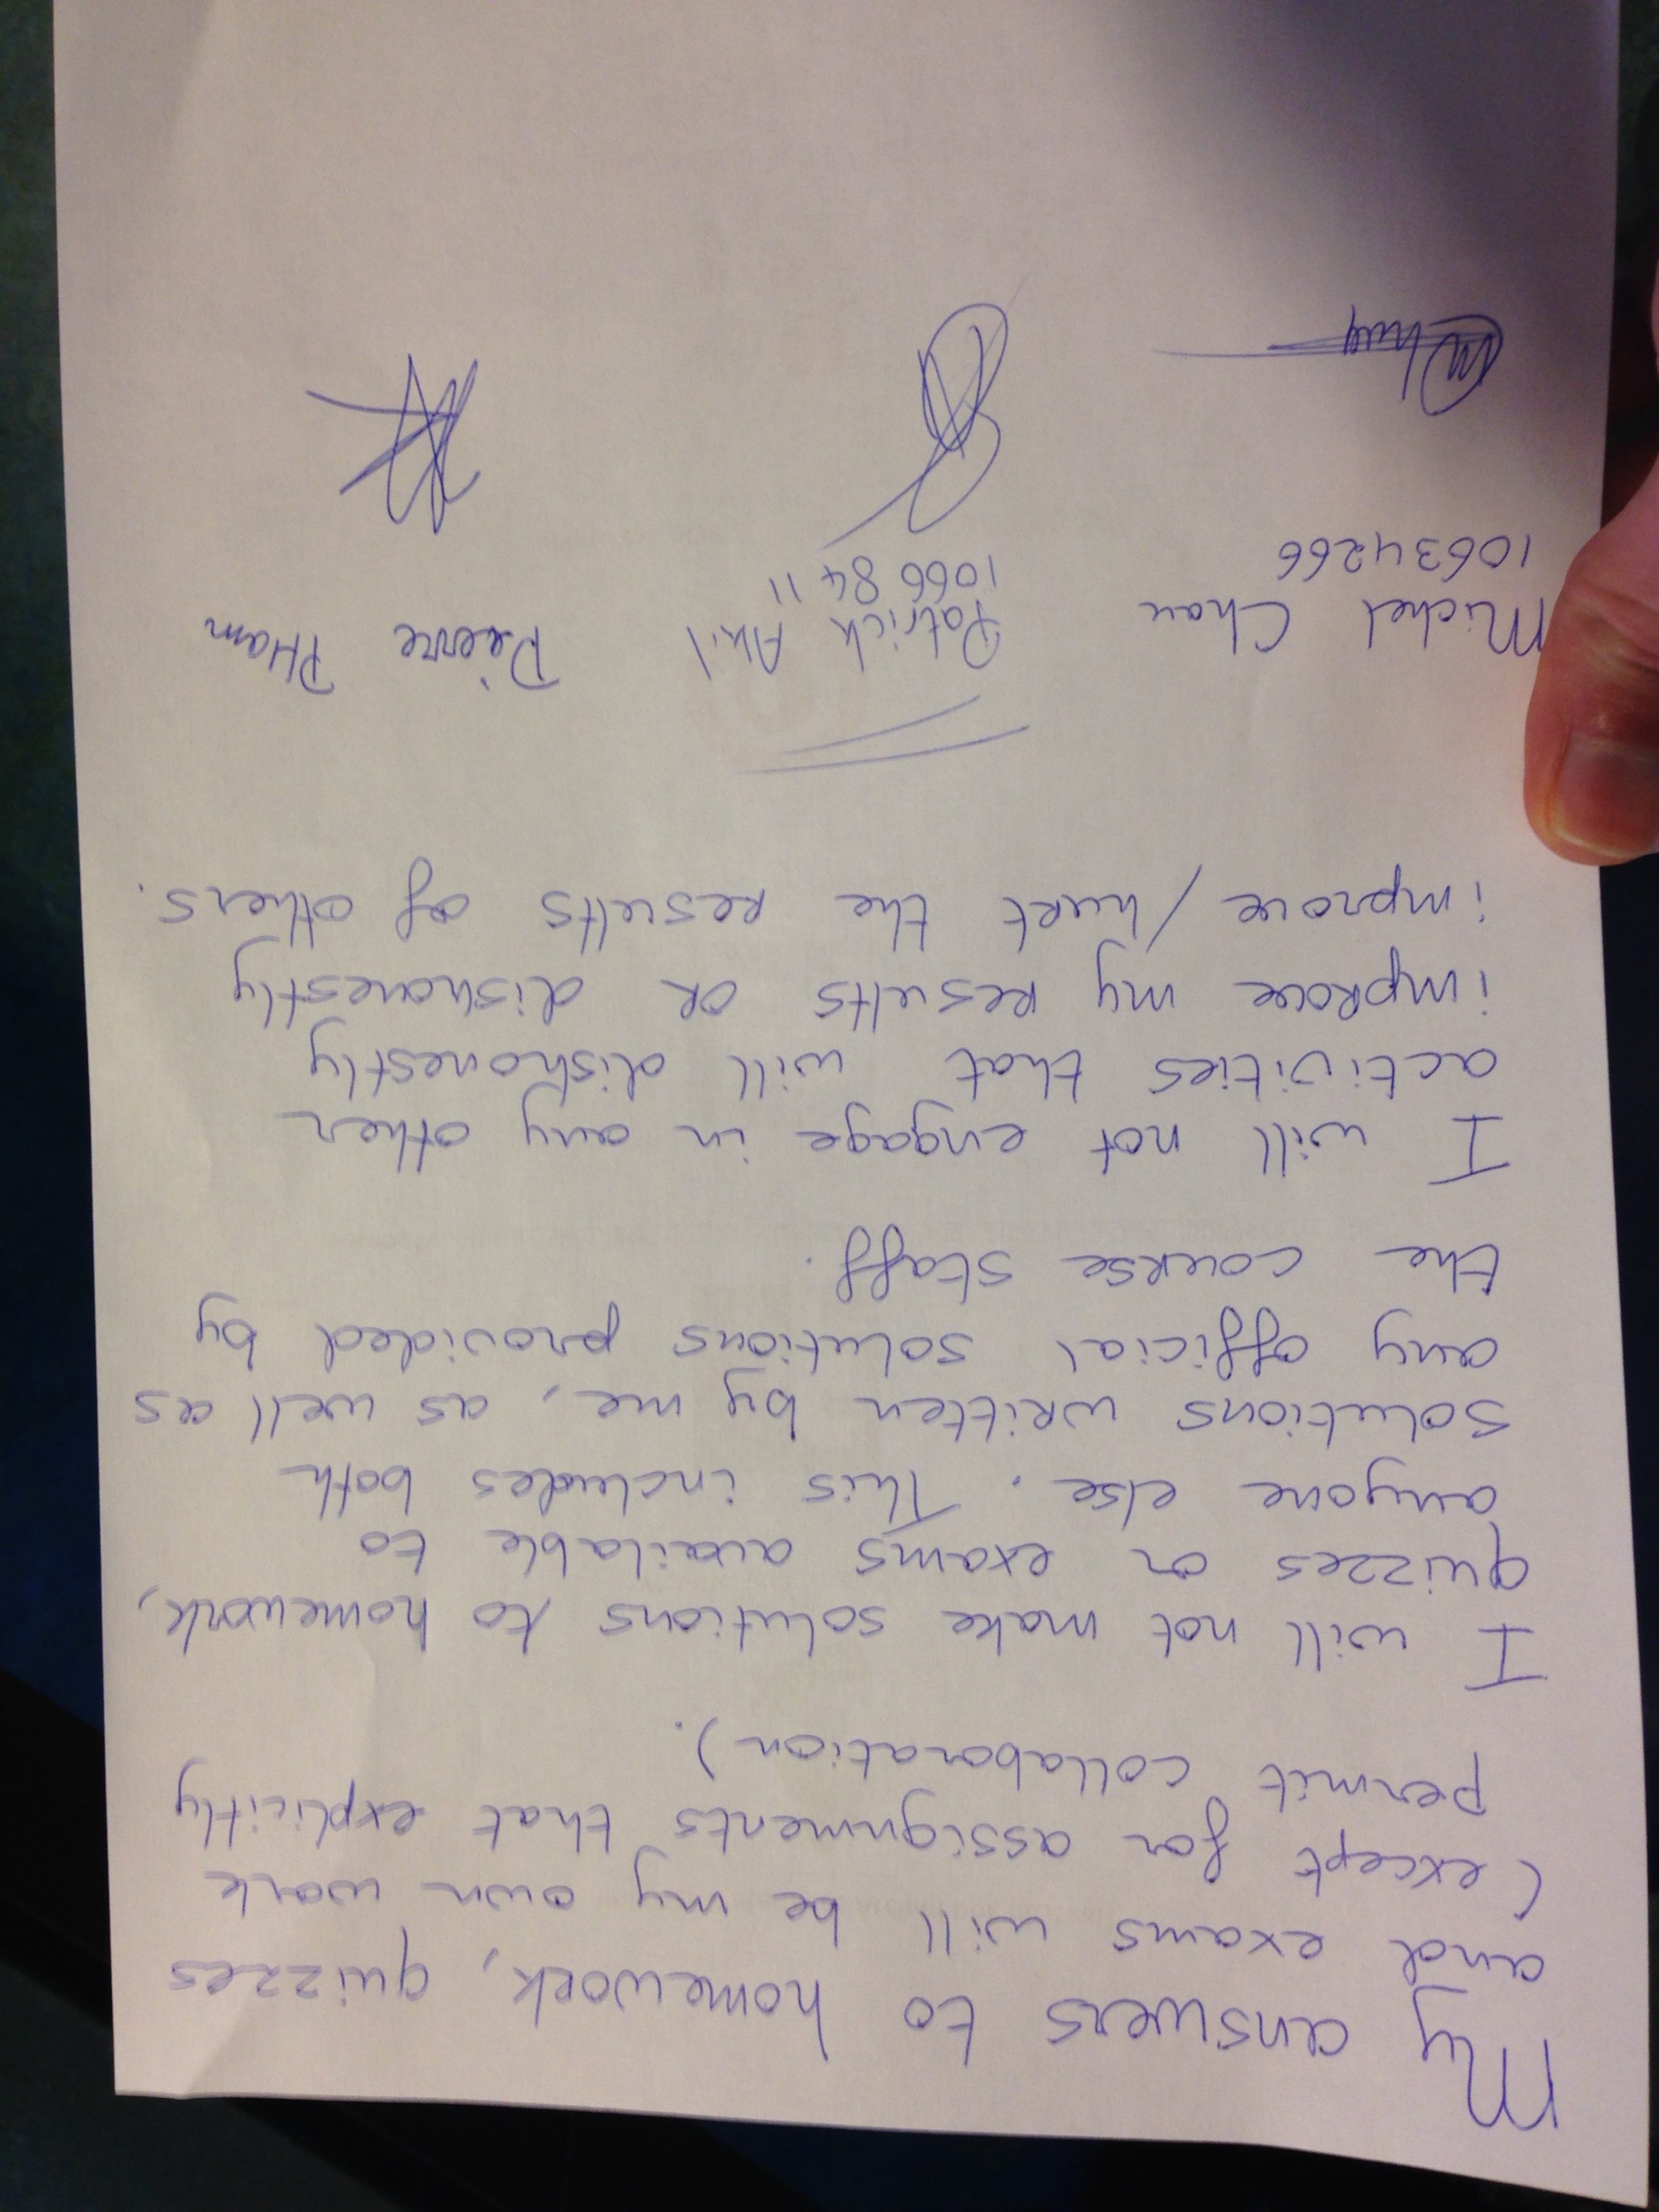 My answers to homework, quizzes
and exams will be my own work
(except for assignments that explicitly
permit collaboration).
I will not make solutions to homework,
quizzes or exams available to
anyone else. This includes both
solutions written by me, as well as
any official solutions provided by
the course staff.
I will not engage in any other
activities that will dishonestly
improve my results or dishonestly
improve/hurt the results of others.
Michel Chau Patrick Akil Pierre PHam
10634266 10668411